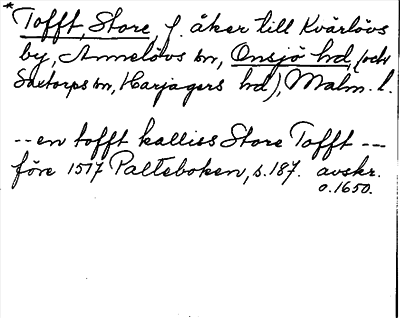 *Tofft, Store, f. åker till Kvärlövs
by, Annelövs sn, Onsjö hd, (och
Saxtorps sn, Harjagers hd), Malm. l.
-- en tofft kalliss Store Tofft ---
före 1517 Palteboken, s. 187. avskr.
o. 1650.